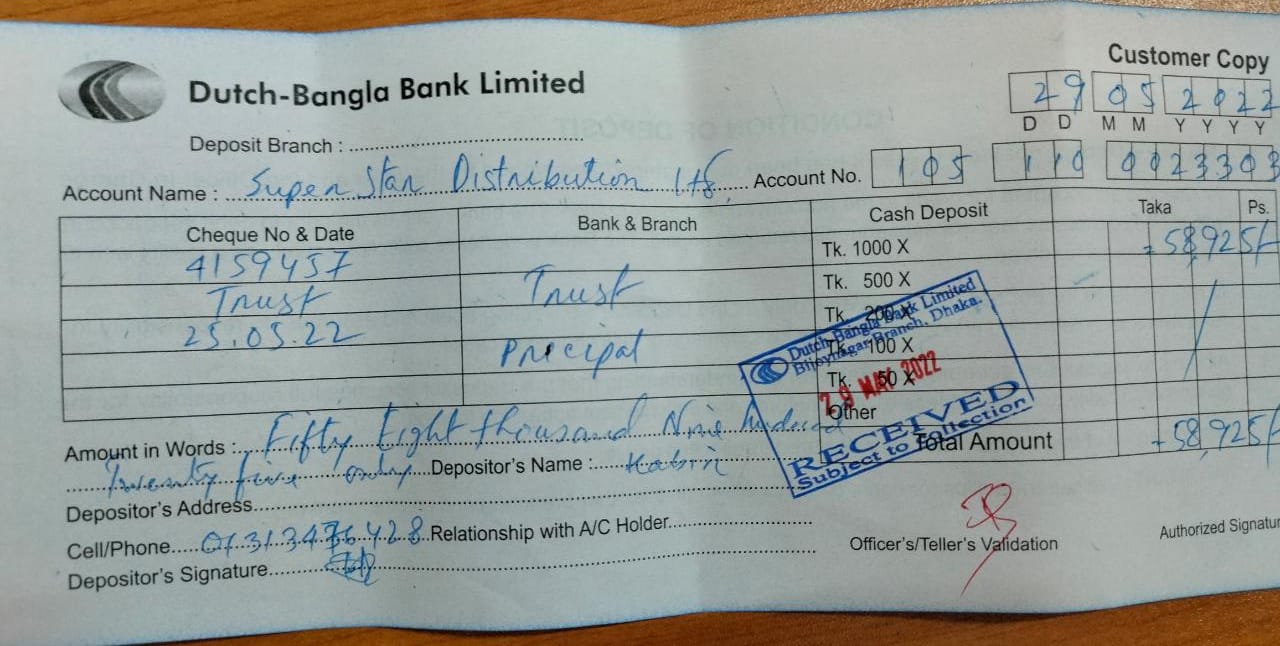 Customer Copy
Dutch-Bangla Bank Limited
29 05 2022
D D M M Y Y Y Y
Deposit Branch :
Account Name : Super Star Distribution Ltd. Account No. 105 110 0023303
Cheque No & Date Bank & Branch Cash Deposit Taka Ps.
4159457 Tk. 1000 X = 58,925/-
Trust Trust Tk. 500 X
25.05.22 Tk. 200 X
Precipal Tk. 100 X
Tk. 50 X
Other
Total Amount = 58,925/-
Dutch-Bangla Bank Limited
Bijoynagar Branch, Dhaka.
29 MAY 2022
RECEIVED
Subject to Collection
Amount in Words : Fifty Eight thousand Nine hundred
Twenty five only Depositor's Name : Kabir
Depositor's Address
Cell/Phone Relationship with A/C Holder
Depositor's Signature
Officer's/Teller's Validation
Authorized Signatur